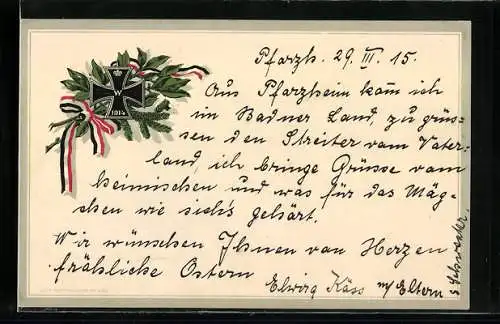 Pforzh. 29. III. 15.
Aus Pforzheim kom̄ ich
im Badner Land, zu grüs-
sen den Streiter vom Vater-
land, ich bringe Grüsse vom
heimischen und was für das Mäg-
chen wie sich's gehört.
Wir wünschen Ihnen von Herzen
fröhliche Ostern
Käss m/ Eltern
s Schwester.
W
1914